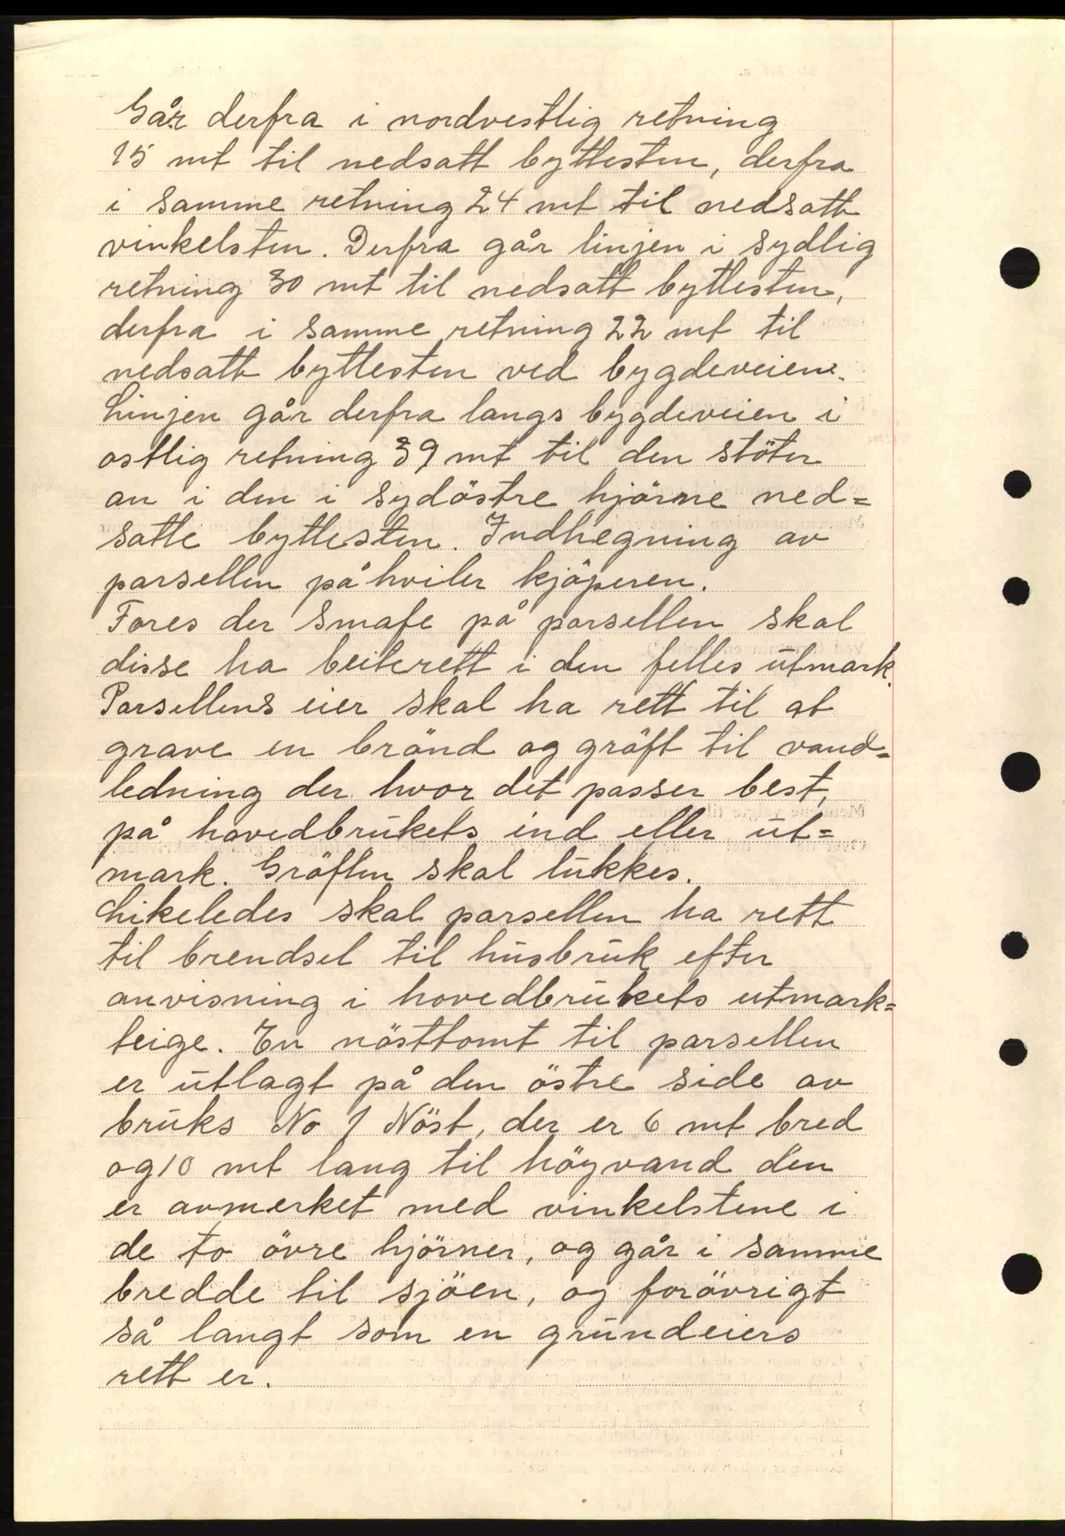 Går derfra i nordvestlig retning
15 mt til nedsatt byttesten, derfra
i samme retning 24 mt til nedsatt
vinkelsten. Derfra går linjen i sydlig
retning 30 mt til nedsatt byttesten,
derfra i samme retning 22 mt til
nedsatt byttesten ved bygdeveien.
Linjen går derfra langs bygdeveien i
ostlig retning 39 mt til den stöter
an i den i sydöstre hjörne ned=
satte byttesten. Indhegning av
parsellen påhviler kjöperen.
Fores der smafe på parsellen skal
disse ha beiterett i den felles utmark.
Parsellens eier skal ha rett til at
grave en brönd og gröft til vand=
ledning der hvor det passer best,
på hovedbrukets ind eller ut=
mark. Gröften skal lukkes.
Likeledes skal parsellen ha rett
til brendsel til husbruk efter
anvisning i hovedbrukets utmark=
teige. En nösttomt til parsellen
er utlagt på den östre side av
bruks No 1 Nöst, der er 6 mt bred
og 10 mt lang til höyvand den
er avmerket med vinkelstene i
de to övre hjörner, og går i samme
bredde til sjöen, og forövrigt
så langt som en grundeiers
rett er.